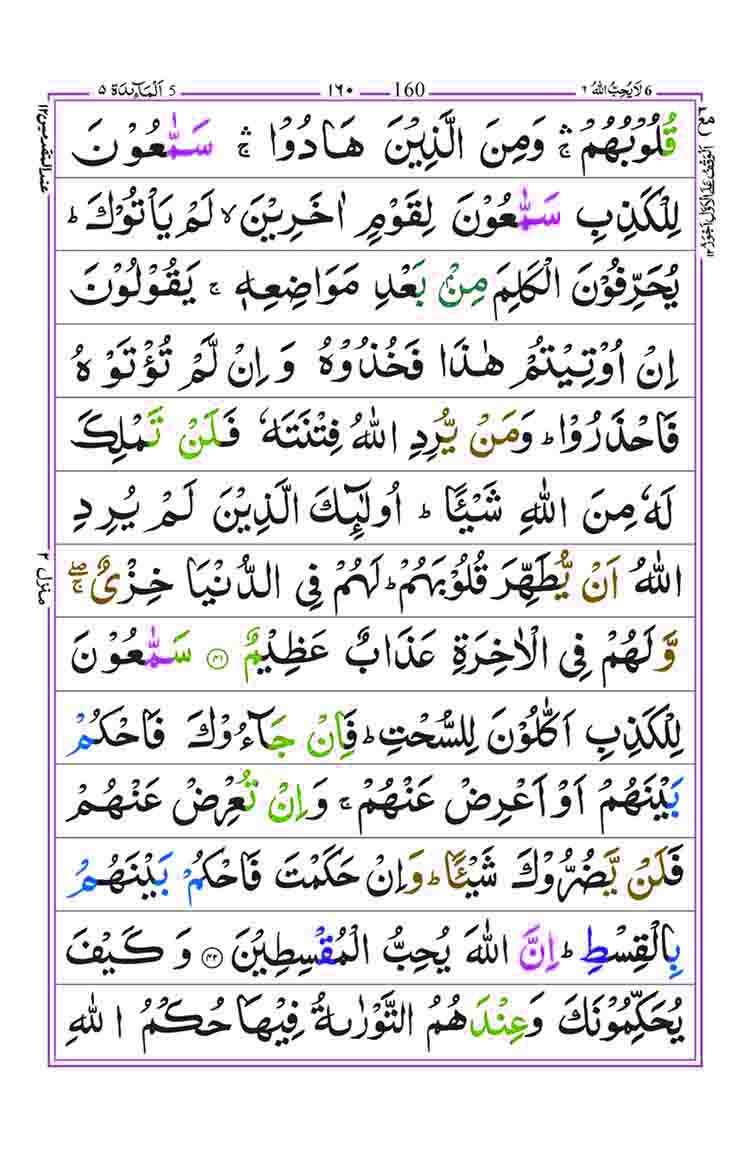 6 لَا يُحِبُّ اللّٰهُ ٦ 160 ١٦٠ 5 اَلْمَآئِدَة ٥
قُلُوْبُهُمْ ۛۚ وَمِنَ الَّذِيْنَ هَادُوْا ۛۚ سَمّٰعُوْنَ
لِلْكَذِبِ سَمّٰعُوْنَ لِقَوْمٍ اٰخَرِيْنَ ۙ لَمْ يَاْتُوْكَ ؕ
يُحَرِّفُوْنَ الْكَلِمَ مِنْۢ بَعْدِ مَوَاضِعِهٖ ۚ يَقُوْلُوْنَ
اِنْ اُوْتِيْتُمْ هٰذَا فَخُذُوْهُ وَاِنْ لَّمْ تُؤْتَوْهُ
فَاحْذَرُوْا ؕ وَمَنْ يُّرِدِ اللّٰهُ فِتْنَتَهٗ فَلَنْ تَمْلِكَ
لَهٗ مِنَ اللّٰهِ شَيْـًٔا ؕ اُولٰٓئِكَ الَّذِيْنَ لَمْ يُرِدِ
اللّٰهُ اَنْ يُّطَهِّرَ قُلُوْبَهُمْ ؕ لَهُمْ فِى الدُّنْيَا خِزْىٌ ۖۚ
وَّلَهُمْ فِى الْاٰخِرَةِ عَذَابٌ عَظِيْمٌ ﴿۴۱﴾ سَمّٰعُوْنَ
لِلْكَذِبِ اَكّٰلُوْنَ لِلسُّحْتِ ؕ فَاِنْ جَآءُوْكَ فَاحْكُمْ
بَيْنَهُمْ اَوْ اَعْرِضْ عَنْهُمْ ۚ وَاِنْ تُعْرِضْ عَنْهُمْ
فَلَنْ يَّضُرُّوْكَ شَيْـًٔا ؕ وَاِنْ حَكَمْتَ فَاحْكُمْ بَيْنَهُمْ
بِالْقِسْطِ ؕ اِنَّ اللّٰهَ يُحِبُّ الْمُقْسِطِيْنَ ﴿۴۲﴾ وَكَيْفَ
يُحَكِّمُوْنَكَ وَعِنْدَهُمُ التَّوْرٰىةُ فِيْهَا حُكْمُ اللّٰهِ
عند المتقدمين ١٢
منزل ٢